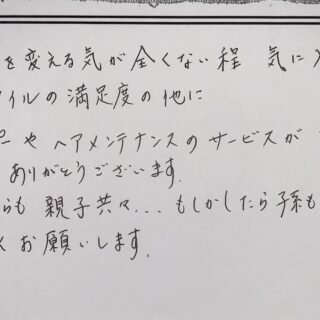 を変える気が全くない程 気に入
イルの満足度の他に
ーや ヘアメンテナンスのサービスが
ありがとうございます.
らも 親子共々... もしかしたら孫も
お願いします.